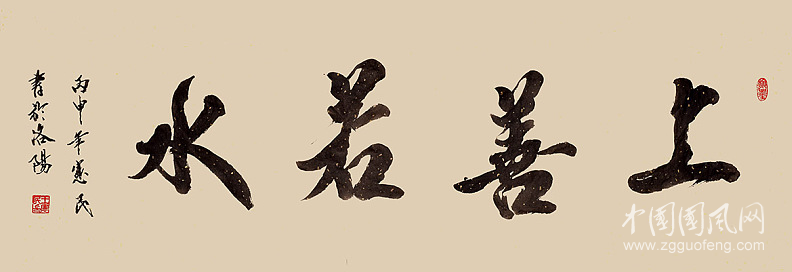 上善若水
丙申年憲民
書於洛陽
中国国风网
www.zgguofeng.com